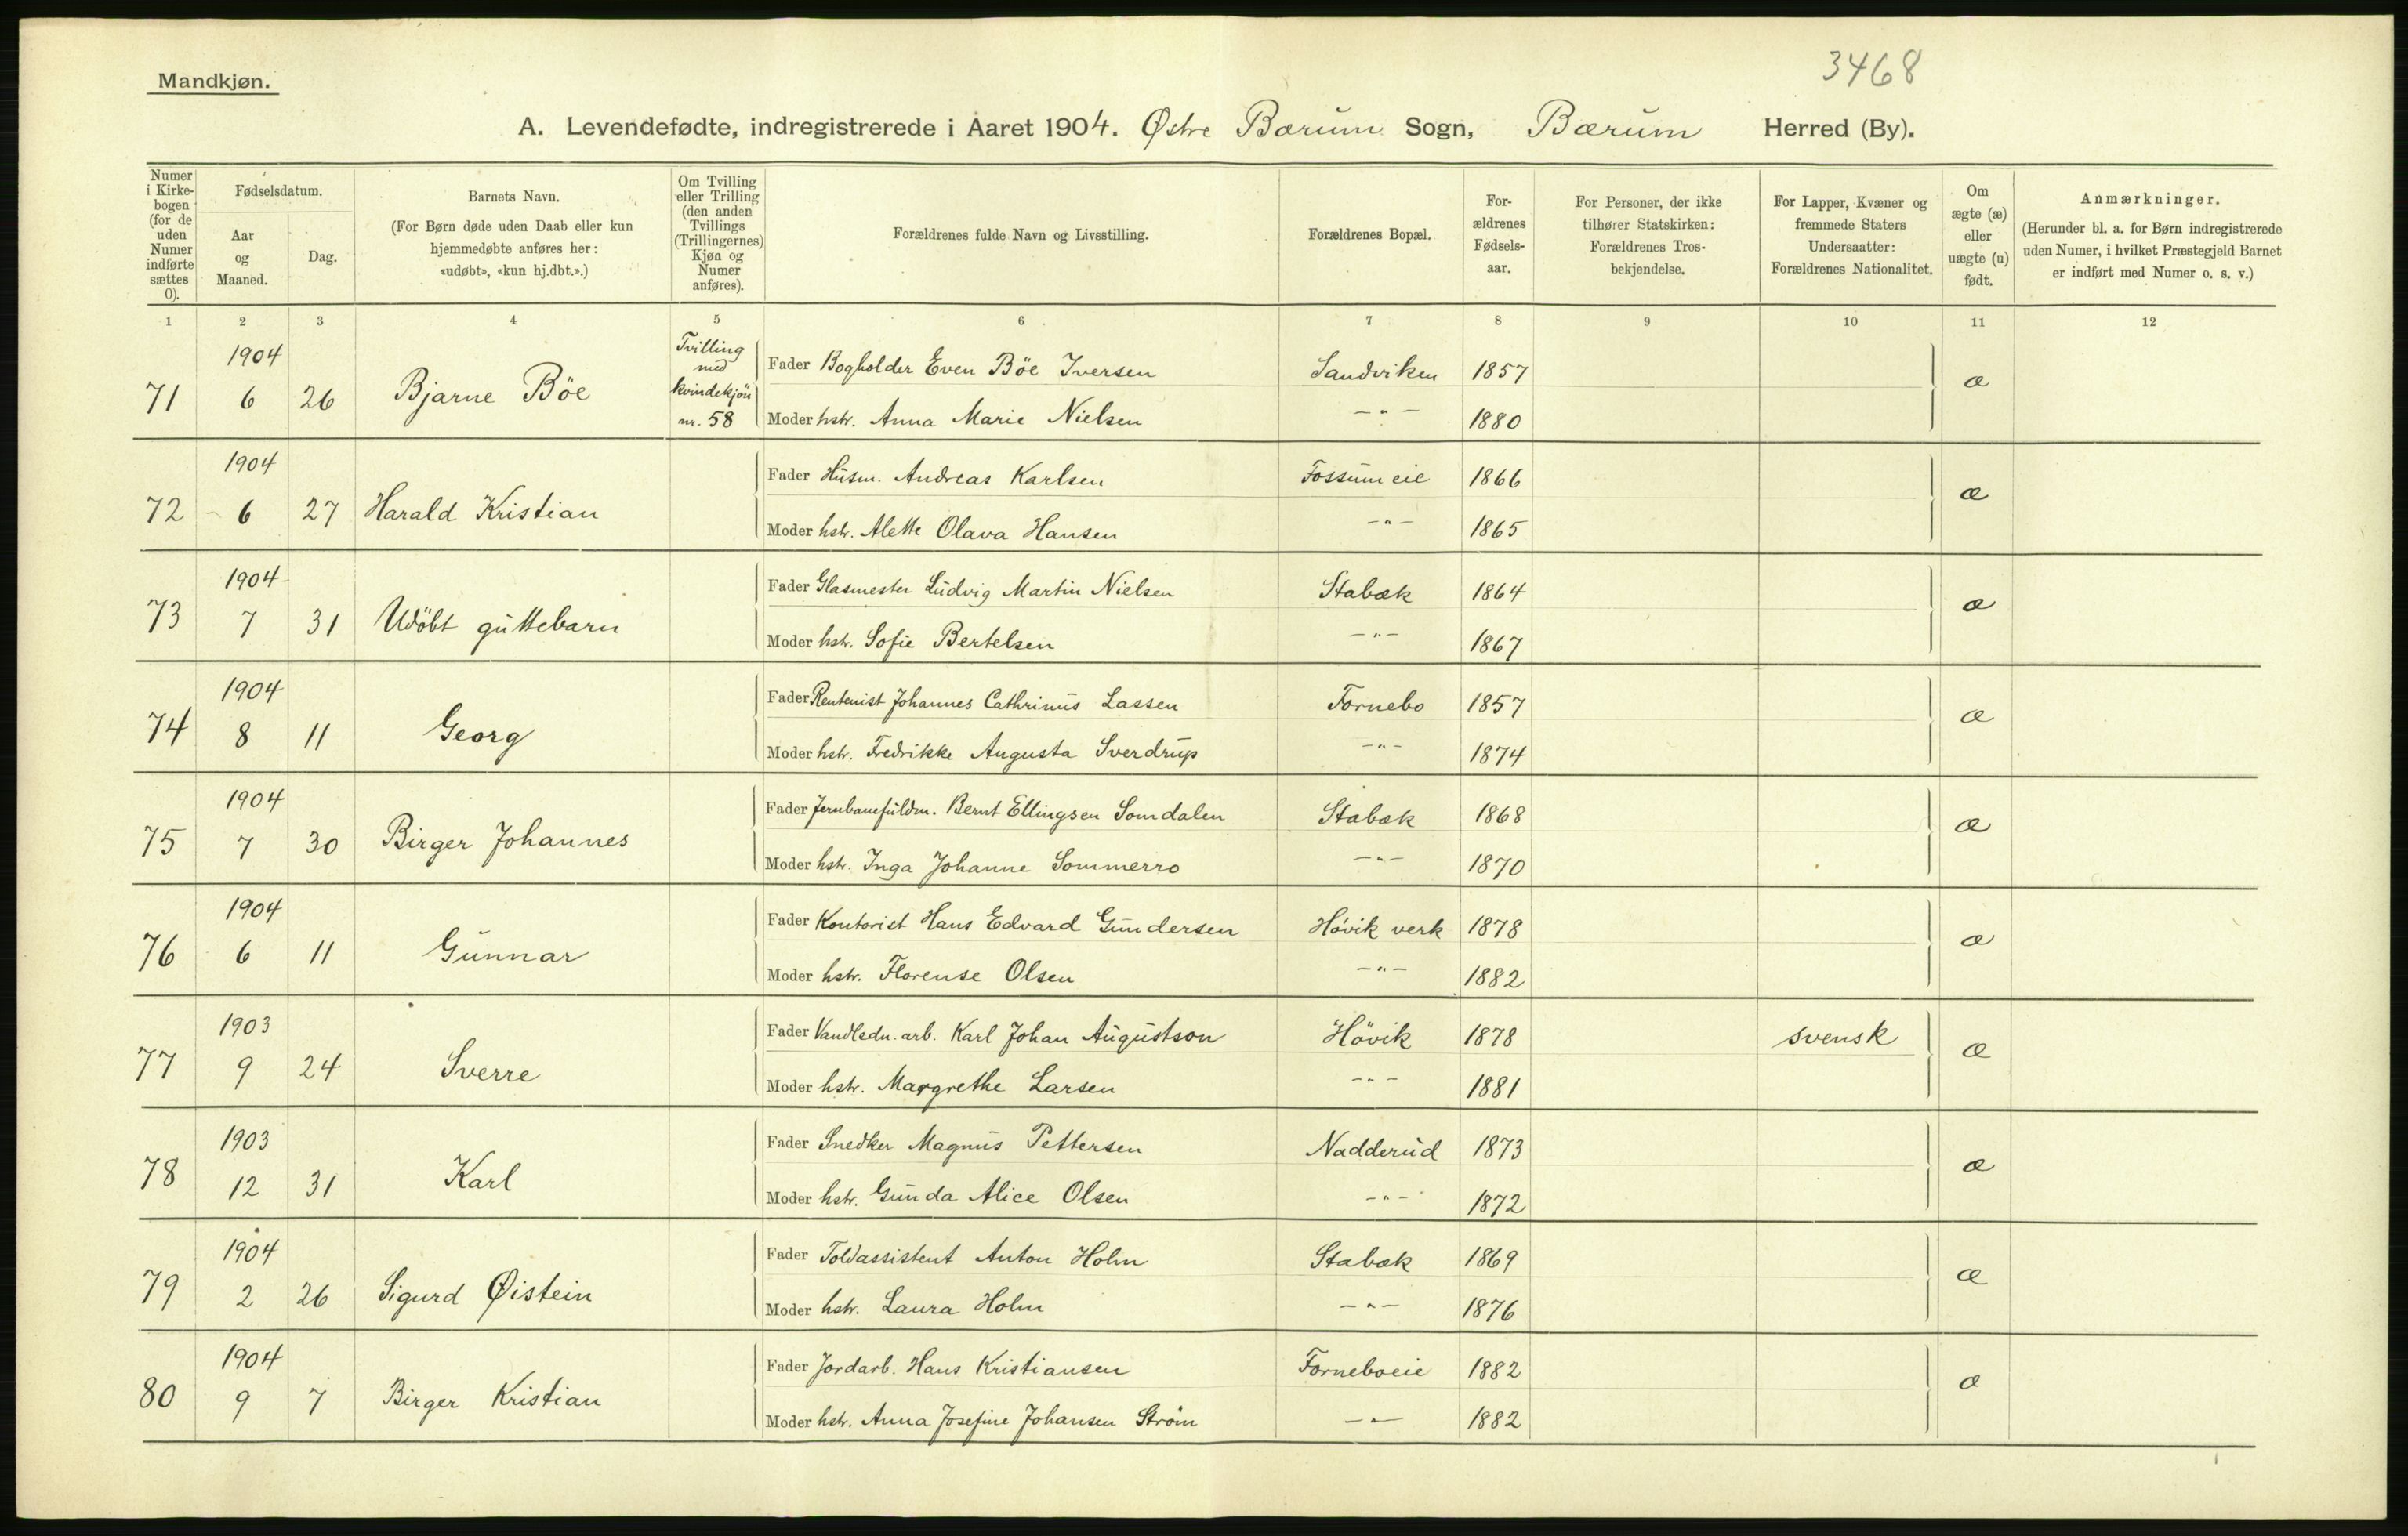 3468
Mandkjøn.
A. Levendefødte, indregistrerede i Aaret 1904. Østre Bærum Sogn, Bærum Herred (By).
Numer i Kirkebogen (for de uden Numer indførte sættes 0).
Fødselsdatum.
Aar og Maaned.
Dag.
Barnets Navn.
(For Børn døde uden Daab eller kun hjemmedøbte anføres her: «udøbt», «kun hj.dbt.».)
Om Tvilling eller Trilling (den anden Tvillings (Trillingernes) Kjøn og Numer anføres).
Forældrenes fulde Navn og Livsstilling.
Forældrenes Bopæl.
Forældrenes Fødselsaar.
For Personer, der ikke tilhører Statskirken: Forældrenes Trosbekjendelse.
For Lapper, Kvæner og fremmede Staters Undersaatter: Forældrenes Nationalitet.
Om ægte (æ) eller uægte (u) født.
Anmærkninger.
(Herunder bl. a. for Børn indregistrerede uden Numer, i hvilket Præstegjeld Barnet er indført med Numer o. s. v.)
1 2 3 4 5 6 7 8 9 10 11 12
71 1904 6 26 Bjarne Böe Tvilling med kvindekjön nr. 58
Fader Bogholder Even Böe Iversen Sandviken 1857 æ
Moder hstr. Anna Marie Nielsen -"- 1880
72 1904 6 27 Harald Kristian
Fader Husm. Andreas Karlsen Fossumeie 1866 æ
Moder hstr. Alette Olava Hansen -"- 1865
73 1904 7 31 Udöbt guttebarn
Fader Glasmester Ludvig Martin Nielsen Stabæk 1864 æ
Moder hstr. Sofie Bertelsen -"- 1867
74 1904 8 11 Georg
Fader Rentenist Johannes Cathrinus Lassen Fornebo 1857 æ
Moder hstr. Fredrikke Augusta Sverdrup -"- 1874
75 1904 7 30 Birger Johannes
Fader Jernbanefuldm. Bernt Ellingsen Somdalen Stabæk 1868 æ
Moder hstr. Inga Johanne Sommerro -"- 1870
76 1904 6 11 Gunnar
Fader Kontorist Hans Edvard Gundersen Hövik verk 1878 æ
Moder hstr. Florense Olsen -"- 1882
77 1903 9 24 Sverre
Fader Vandledn. arb. Karl Johan Augustson Hövik 1878 svensk æ
Moder hstr. Margrethe Larsen -"- 1881
78 1903 12 31 Karl
Fader Snedker Magnus Pettersen Nadderud 1873 æ
Moder hstr. Gunda Alice Olsen -"- 1872
79 1904 2 26 Sigurd Øistein
Fader Toldassistent Anton Holm Stabæk 1869 æ
Moder hstr. Laura Holm -"- 1876
80 1904 9 7 Birger Kristian
Fader Jordarb. Hans Kristiansen Forneboeie 1882 æ
Moder hstr. Anna Josefine Johansen Ström -"- 1882